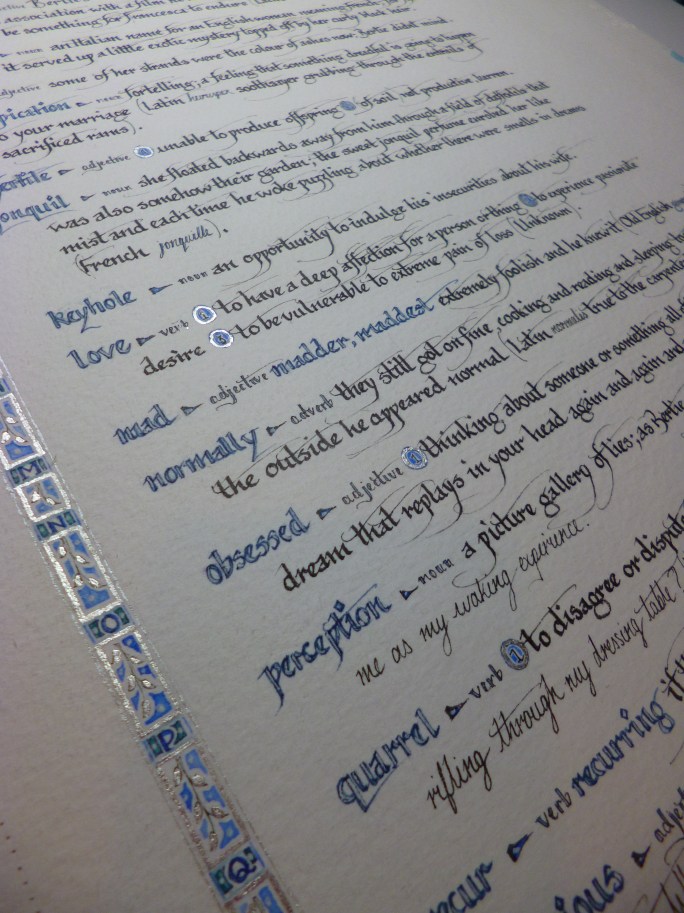 association with a film
be something for Frances to endure (Latin
noun an Italian name for an English woman meaning
it served up a little exotic mystery topped off by her curly black
adjective some of her strands were the colour of
noun fortelling; a feeling that something dreadful is going to happen
to your marriage (Latin haruspex soothsayer grubbing through the entrails of
sacrificed rams).
adjective 1 unable to produce offspring 2 of soil, not productive, barren.
jonquil noun she floated backwards away from him through a field of daffodils that
was also somehow their garden; the sweet jonquil perfume encircled her like
mist and each time he woke puzzling about whether there were smells in dreams
(French jonquille).
keyhole noun an opportunity to indulge his insecurities about his wife.
love verb 1 to have a deep affection for a person or thing 2 to experience passionate
desire 3 to be vulnerable to extreme pain of loss (Unknown).
mad adjective madder, maddest extremely foolish and he knew it (Old English
normally adverb they still got on fine, cooking and reading and sleeping
the outside he appeared normal (Latin normalis true to the carpenter
obsessed adjective 1 thinking about someone or something all
dream that replays in your head again and again and again and
perception noun a picture gallery of lies; as Bertie
me as my waking experience.
quarrel verb 1 to disagree or
rifling through my dressing table?
recur verb recurring
M
N
O
P
Q